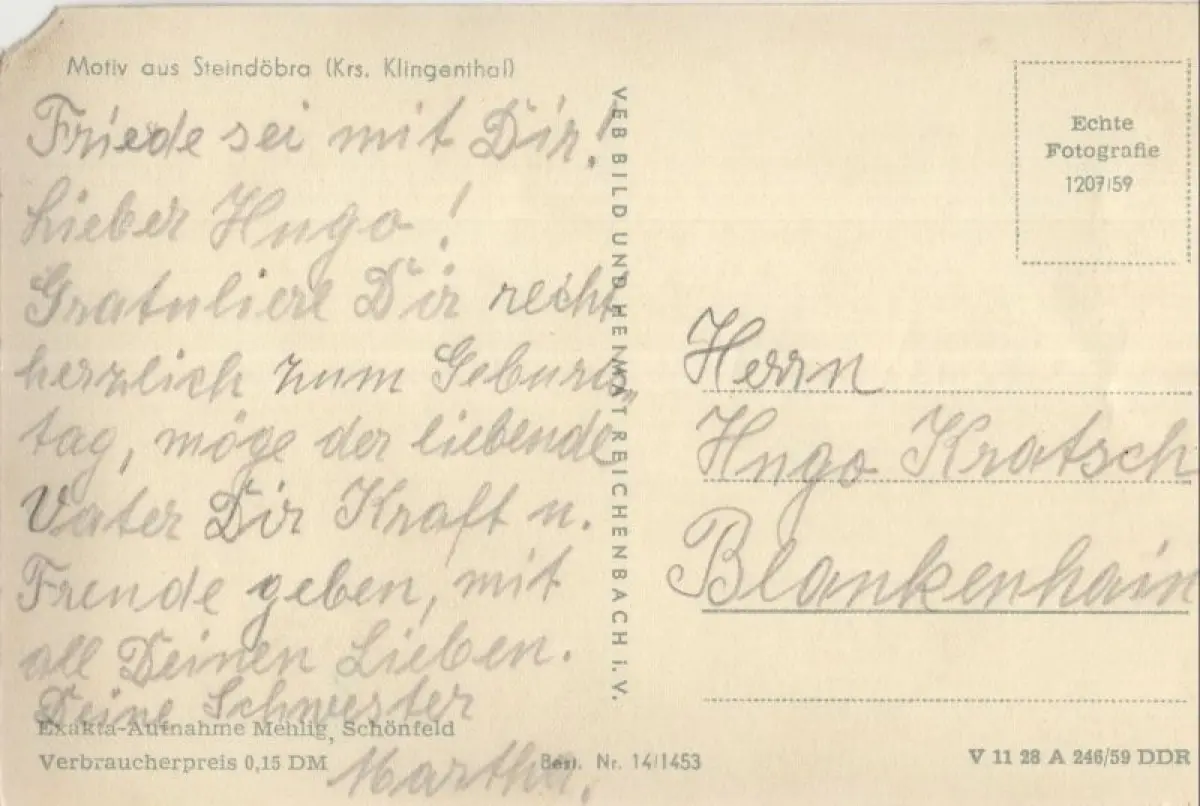 Motiv aus Steindöbra (Krs. Klingenthal)
Friede sei mit Dir!
Lieber Hugo!
Gratuliere Dir recht
herzlich zum Geburts„
tag, möge der liebende
Vater Dir Kraft u.
Freude geben, mit
all Deinen Lieben.
Deine Schwester
Martha.
Exakta-Aufnahme Mehlig, Schönfeld
Verbraucherpreis 0,15 DM
Best. Nr. 14/1453
VEB BILD UND HEIMAT REICHENBACH i. V.
Echte
Fotografie
1207/59
Herrn
Hugo Kratsch
Blankenhain
V 11 28 A 246/59 DDR